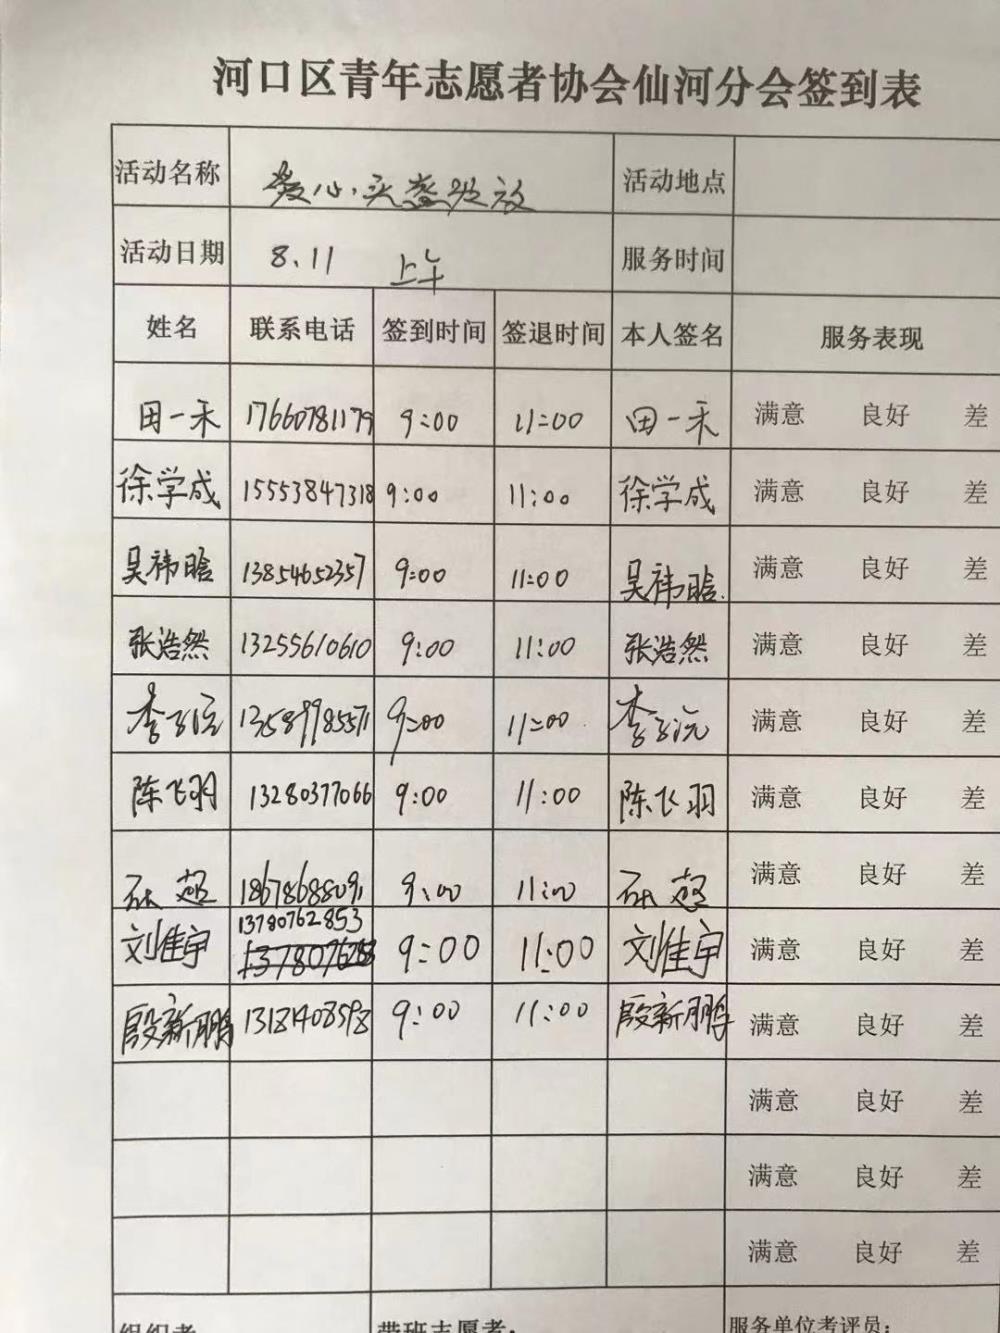 河口区青年志愿者协会仙河分会签到表
活动名称 爱心头盔发放 活动地点
活动日期 8.11 上午 服务时间
姓名 联系电话 签到时间 签退时间 本人签名 服务表现
田一禾 17660781179 9:00 11:00 田一禾 满意 良好 差
徐学成 15553847318 9:00 11:00 徐学成 满意 良好 差
吴祎晗 13854652357 9:00 11:00 吴祎晗. 满意 良好 差
张浩然 13255610610 9:00 11:00 张浩然 满意 良好 差
李子沅 13589985571 9:00 11:00 李子沅 满意 良好 差
陈飞羽 13280377066 9:00 11:00 陈飞羽 满意 良好 差
超 18678688091 9:00 11:00 超 满意 良好 差
刘佳宇 13780762853 9:00 11:00 刘佳宇 满意 良好 差
殷新鹏 13181408598 9:00 11:00 殷新鹏 满意 良好 差
满意 良好 差
满意 良好 差
满意 良好 差
组织者 带班志愿者: 服务单位考评员: